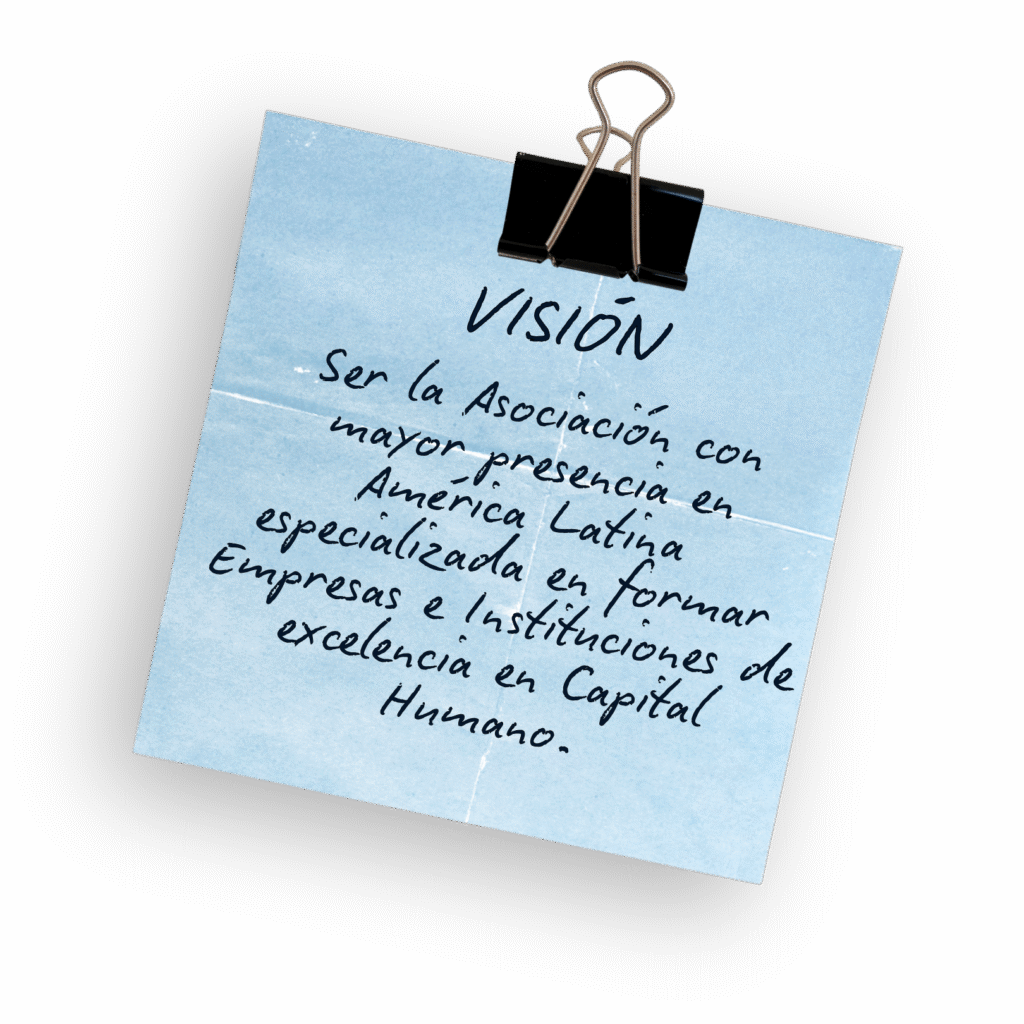 VISIÓN
Ser la Asociación con
mayor presencia en
América Latina
especializada en formar
Empresas e Instituciones de
excelencia en Capital
Humano.